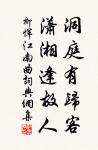 洞庭有歸客
瀟湘逢故人
柳惲江南曲詞典網集